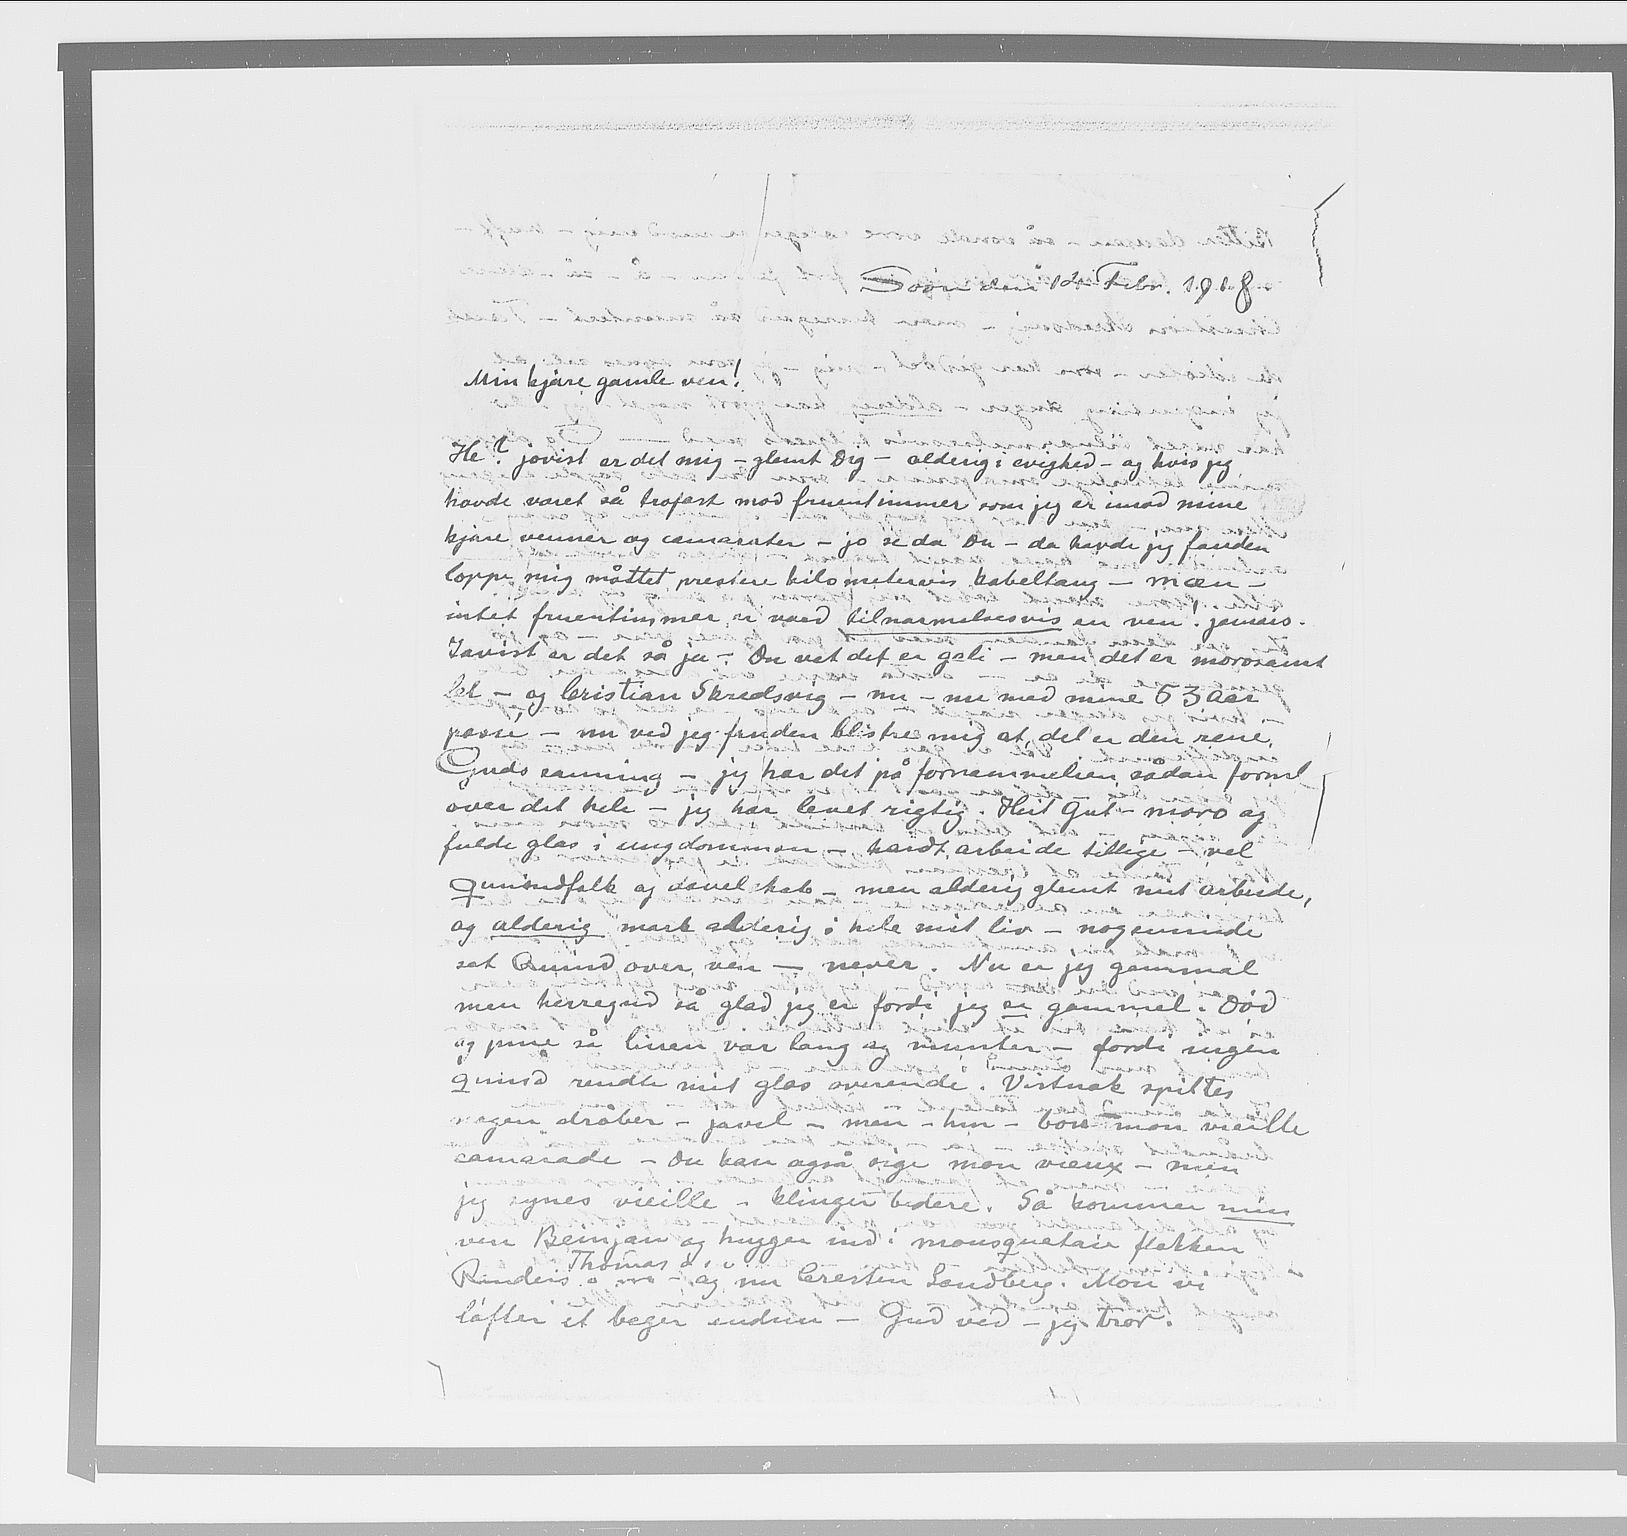 Soon den 12 Febr. 1918.
Min kjære gamle ven!
He? jovist er det mig – glemt Dig – alderig i evighed – og hvis jeg
havde været så trofast mod fruentimmer som jeg er imod mine
kjære venner og camarater – jo se da Du – da havde jeg fanden
loppe mig måttet prestere kilometervis kabeltaug – mæn –
intet fruentimmer er værd tilnærmelsesvis en ven! jamais.
Javist er det så ja – Du vet det er gali – men det er morosamt
let – og Cristian Skredsvig – nu – nu med mine 63 aar
passé – nu ved jeg fanden blistre mig at det er den rene,
Guds sanning – jeg har det på fornæmmelsen sådan formel
over det hele – jeg har levet rigtig. Heit Gut – moro og
fulde glas i ungdommen – hardt arbeide tillige – vel
Quindfolk og davelskab – men alderig glemt mit arbeide,
og alderig mærk alderig i hele mit liv – nogensinde
sat Quind over ven – never. Nu er jeg gammal
men herregud så glad jeg er fordi jeg er gammel. Död
og pine så linen var lang og munter – fordi ingen
quind rendte mit glas overende. Vistnok spiltes
nogen dråber – javel – men – hm – bon mon vieille
camarade – Du kan også sige mon vieux – men
jeg synes vieille – klinger bedere. Så kommer min
ven Beinjan og hugger ind i mousquetair flokken
Thomas
Randers – og nu Cresten Sandberg. Mon vi
løfter et beger endnu – Gud ved – jeg tror.